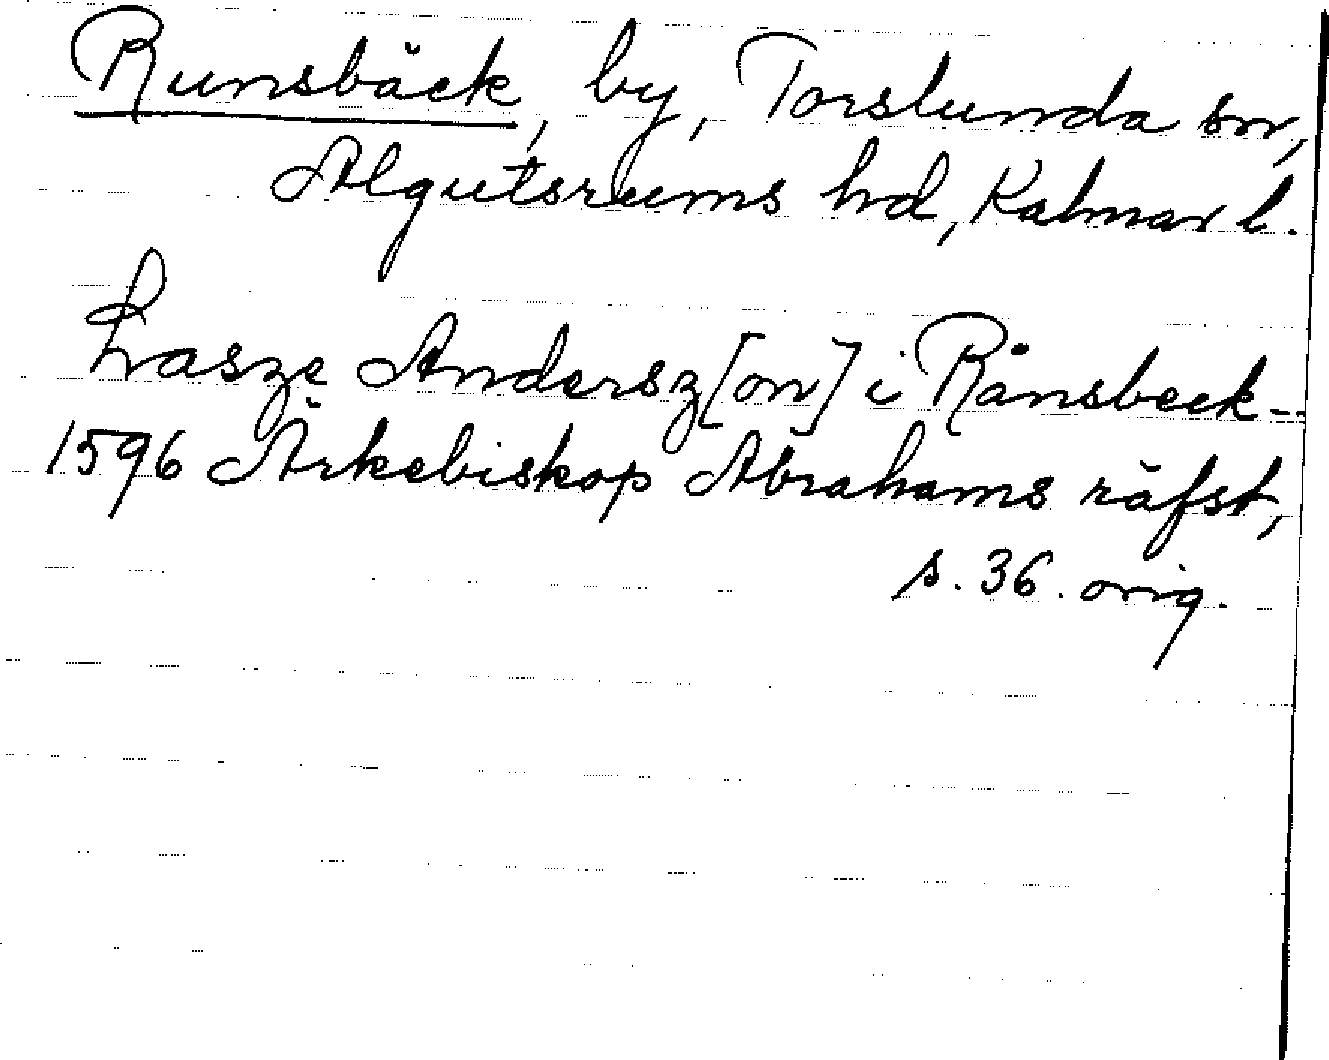 Runsbäck, by, Torslunda sn,
Algutsrums hd, Kalmar l.
Lasze Andersz[on] i Rånsbeck -
1596 Ärkebiskop Abrahams räfst,
s. 36. orig.